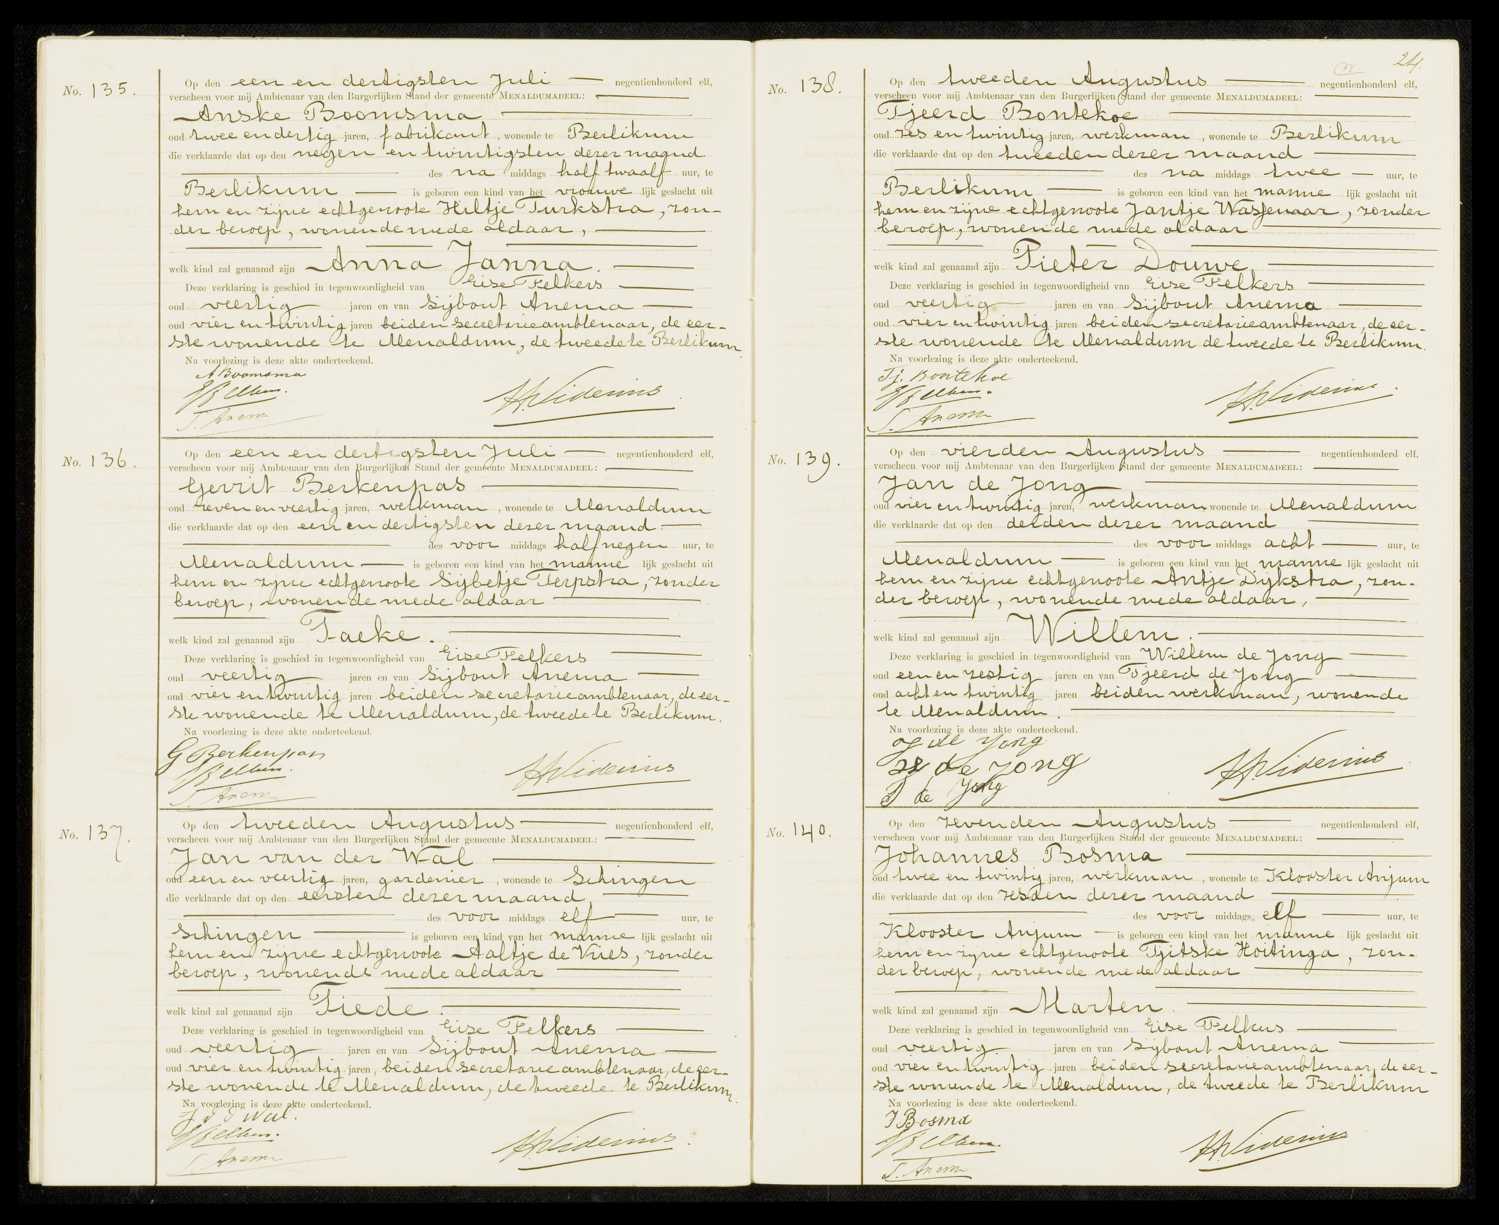 No. 135.
Op den een en dertigsten Juli negentienhonderd elf,
verscheen voor mij Ambtenaar van den Burgerlijken Stand der gemeente MENALDUMADEEL:
Anske Boomsma
oud twee en dertig jaren, fabrikant, wonende te Berlikum
die verklaarde dat op den negen en twintigsten dezer maand
des na middags half twaalf uur, te
Berlikum is geboren een kind van het vrouwe lijk geslacht uit
hem en zijne echtgenoote Hiltje Turkstra, zon-
der beroep, wonende mede aldaar,
welk kind zal genaamd zijn Anna Janna.
Deze verklaring is geschied in tegenwoordigheid van Eise Felkers
oud veertig jaren en van Sijbout Anema
oud vier en twintig jaren beiden secretarieambtenaar, de eer-
ste wonende te Menaldum, de tweede te Berlikum.
Na voorlezing is deze akte onderteekend.
A Boomsma
S. Anema
No. 136.
Op den een en dertigsten Juli negentienhonderd elf,
verscheen voor mij Ambtenaar van den Burgerlijken Stand der gemeente MENALDUMADEEL:
Gerrit Berkenpas
oud zeven en veertig jaren, werkman, wonende te Menaldum
die verklaarde dat op den een en dertigsten dezer maand
des voor middags half negen uur, te
Menaldum is geboren een kind van het manne lijk geslacht uit
hem en zijne echtgenoote Sijbetje Terpstra, zonder
beroep, wonende mede aldaar
welk kind zal genaamd zijn Taeke.
Deze verklaring is geschied in tegenwoordigheid van Eise Felkers
oud veertig jaren en van Sijbout Anema
oud vier en twintig jaren beiden secretarieambtenaar, de eer-
ste wonende te Menaldum, de tweede te Berlikum.
Na voorlezing is deze akte onderteekend.
G Berkenpas
S. Anema
No. 137.
Op den tweeden Augustus negentienhonderd elf,
verscheen voor mij Ambtenaar van den Burgerlijken Stand der gemeente MENALDUMADEEL:
Jan van der Wal
oud een en veertig jaren, gardenier, wonende te Schingen
die verklaarde dat op den eersten dezer maand
des voor middags elf uur, te
Schingen is geboren een kind van het manne lijk geslacht uit
hem en zijne echtgenoote Aaltje de Vries, zonder
beroep, wonende mede aldaar
welk kind zal genaamd zijn Tiede.
Deze verklaring is geschied in tegenwoordigheid van Eise Felkers
oud veertig jaren en van Sijbout Anema
oud vier en twintig jaren, beiden secretarieambtenaar, de eer-
ste wonende te Menaldum, de tweede te Berlikum.
Na voorlezing is deze akte onderteekend.
J v d Wal.
S. Anema
24.
No. 138.
Op den tweeden Augustus negentienhonderd elf,
verscheen voor mij Ambtenaar van den Burgerlijken Stand der gemeente MENALDUMADEEL:
Tjeerd Bontekoe
oud zes en twintig jaren, werkman, wonende te Berlikum
die verklaarde dat op den tweeden dezer maand
des na middags twee uur, te
Berlikum is geboren een kind van het manne lijk geslacht uit
hem en zijne echtgenoote Jantje Wassenaar, zonder
beroep, wonende mede aldaar
welk kind zal genaamd zijn Pieter Douwe
Deze verklaring is geschied in tegenwoordigheid van Eise Felkers
oud veertig jaren en van Sijbout Anema
oud vier en twintig jaren beiden secretarieambtenaar, de eer-
ste wonende te Menaldum de tweede te Berlikum.
Na voorlezing is deze akte onderteekend.
Tj. Bontekoe
S. Anema
No. 139.
Op den vierden Augustus negentienhonderd elf,
verscheen voor mij Ambtenaar van den Burgerlijken Stand der gemeente MENALDUMADEEL:
Jan de Jong
oud vier en twintig jaren, werkman wonende te Menaldum
die verklaarde dat op den derden dezer maand
des voor middags acht uur, te
Menaldum is geboren een kind van het manne lijk geslacht uit
hem en zijne echtgenoote Antje Dijkstra, zon-
der beroep, wonende mede aldaar,
welk kind zal genaamd zijn Willem.
Deze verklaring is geschied in tegenwoordigheid van Willem de Jong
oud een en zestig jaren en van Tjeerd de Jong
oud acht en twintig jaren beiden werkman, wonende
te Menaldum.
Na voorlezing is deze akte onderteekend.
de Jong
de Jong
de Jong
No. 140.
Op den zevenden Augustus negentienhonderd elf,
verscheen voor mij Ambtenaar van den Burgerlijken Stand der gemeente MENALDUMADEEL:
Johannes Bosma
oud twee en twintig jaren, werkman, wonende te Klooster Anjum
die verklaarde dat op den zesden dezer maand
des voor middags, elf uur, te
Klooster Anjum is geboren een kind van het manne lijk geslacht uit
hem en zijne echtgenoote Tjitske Hoitinga, zon-
der beroep, wonende mede aldaar
welk kind zal genaamd zijn Marten.
Deze verklaring is geschied in tegenwoordigheid van Eise Felkers
oud veertig jaren en van Sijbout Anema
oud vier en twintig jaren beiden secretarieambtenaar, de eer-
ste wonende te Menaldum, de tweede te Berlikum
Na voorlezing is deze akte onderteekend.
J Bosma
S. Anema